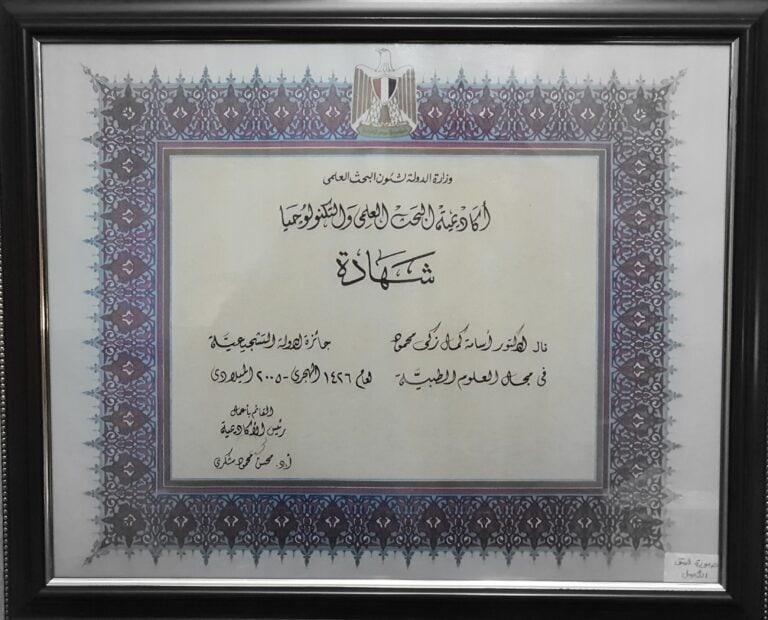 وزارة الدولة لشئون البحث العلمى
أكاديمية البحث العلمى والتكنولوجيا
شهادة
نال الدكتور أسامة كمال زكى محمود جائزة الدولة التشجيعية
فى مجال العلوم الطبية لعام ١٤٢٦ الهجرى - ٢٠٠٥ الميلادى
القائم بأعمال
رئيس الأكاديمية
أ.د. محسن محمود شكرى
صورة طبق
الأصل